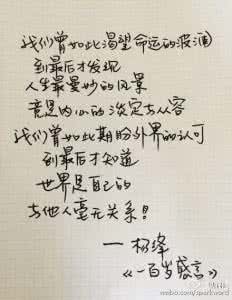 我们曾如此渴望命运的波澜
到最后才发现
人生最曼妙的风景
竟是内心的淡定与从容
我们曾如此期盼外界的认可
到最后才知道
世界是自己的
与他人毫无关系！
— 杨绛
《一百岁感言》
weibo.com/sparkword